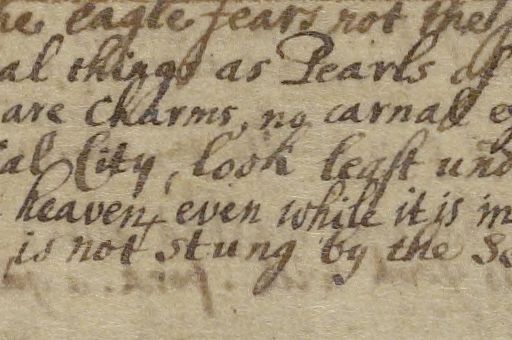 he eagle fears not the
al things as Pearls of
are Charms, no carnal
ial City, look least und
heaven, even while it is in
is not stung by the